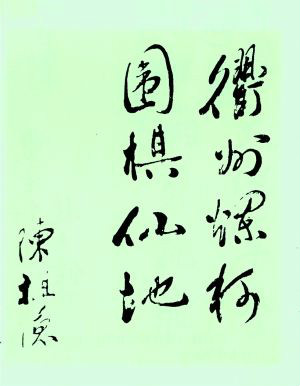 衢州爛柯
圍棋仙地
陳祖德